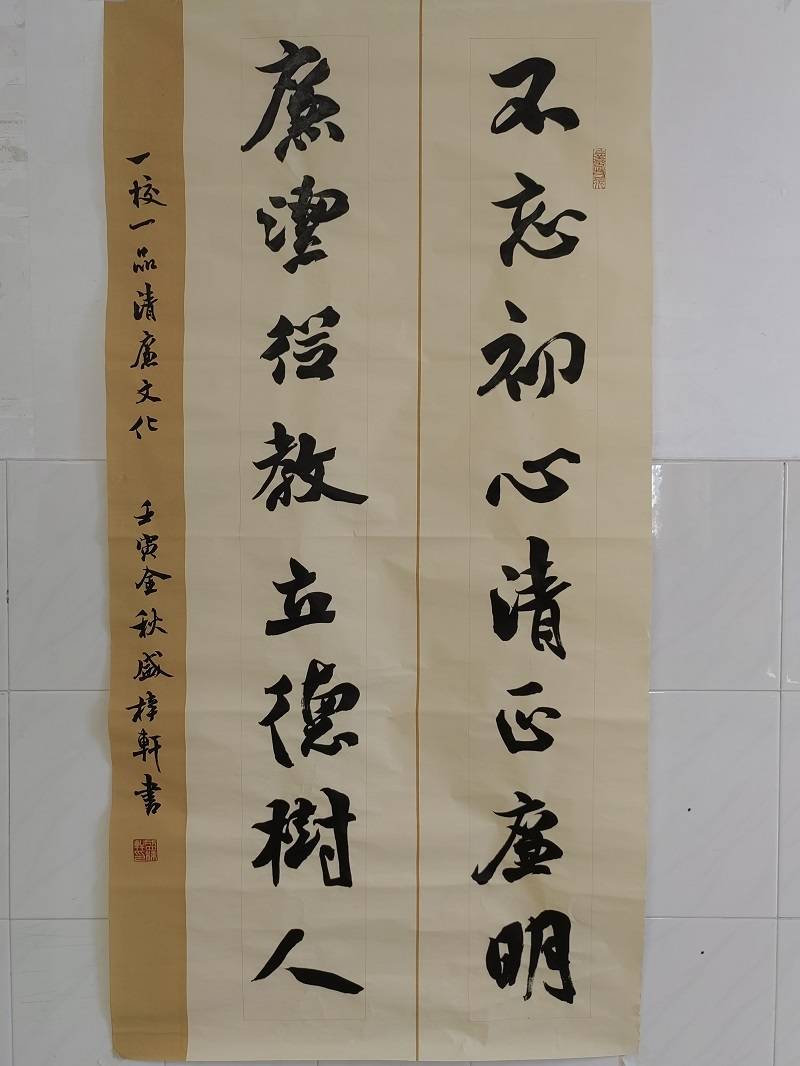 不忘初心清正廉明
廉潔從教立德樹人
一校一品清廉文化 壬寅金秋盛梓軒书